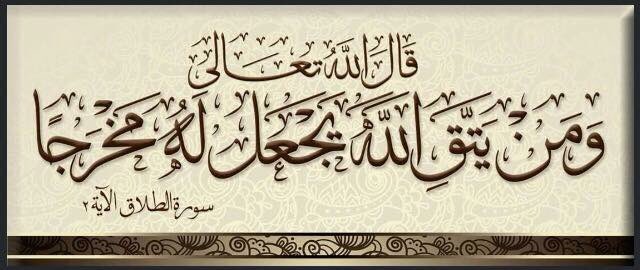 قَالَ اللَّهُ تَعَالَى
وَمَنْ يَتَّقِ اللَّهَ يَجْعَلْ لَهُ مَخْرَجًا
سورة الطلاق الآية ٢